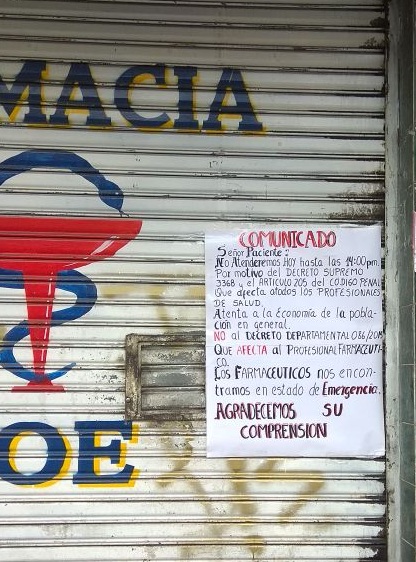 MACIA
OE
COMUNICADO
Señor Paciente:
No Atenderemos HOY hasta las 14:00pm.
Por motivo del DECRETO SUPREMO
3368 y el ARTICULO 205 del CODIGO PENAL
Que afecta atodos los PROFESIONALES
DE SALUD.
Atenta a la Economía de la pobla-
ción en general.
NO al DECRETO DEPARTAMENTAL 086/2017
QUE AFECTA al PROFESIONAL FARMACEUTI-
CO.
LOS FARMACEUTICOS nos encon-
tramos en estado de Emergencia.
AGRADECEMOS SU
COMPRENSION